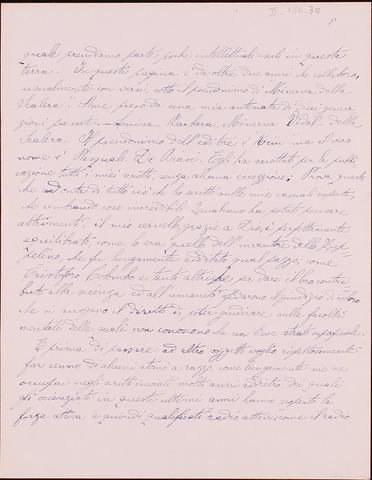 II-186.30
quale prendiamo parte, pochi intellettuali esuli in questa
terra. In questa pagina è da oltre due anni che collaboro,
usualmente con versi, sotto il pseudonimo di Minerva della
Scalera: Nome preso da una mia antenata di dieci genera
zioni passate. Luisa, Barbara, Minerva Vidal della
Scalera. Il pseudonimo dell'editore è ma il vero
nome è Pasquale De Biasi. Egli ha accettato per la pubbli
cazione tutti i miei scritti, senza alcuna eccezione; Prova questa
che ad onta di tutto ciò che ho scritto sulle mie casuali scoperte,
che sembrando cose incredibili qualcuno ha potuto pensare
altrimenti, il mio cervello, grazie a Dio, è perfettamente
equilibrato, come lo era quello dell'inventore dello Zep=
pelino, che fu lungamente additato qual pazzo; come
Cristoforo Colombo e tanti altri che per dare il loro contri
buto alla scienza ed all'umanità sfidarono il giudizio di coloro
che si arrogano il diritto di poter giudicare sulle facoltà
mentali delle quali non conoscono che un lieve strato superficiale.
E prima di passare ad altro oggetto voglio rispettosamente
far cenno di alcuni atomi a razzo, come lungamente me ne
occupai negli scritti inviati molti anni addietro, dei quali
gli scienziati in questi ultimi anni hanno scoperto la
forza attiva e quindi qualificati radio attivi; come il radio